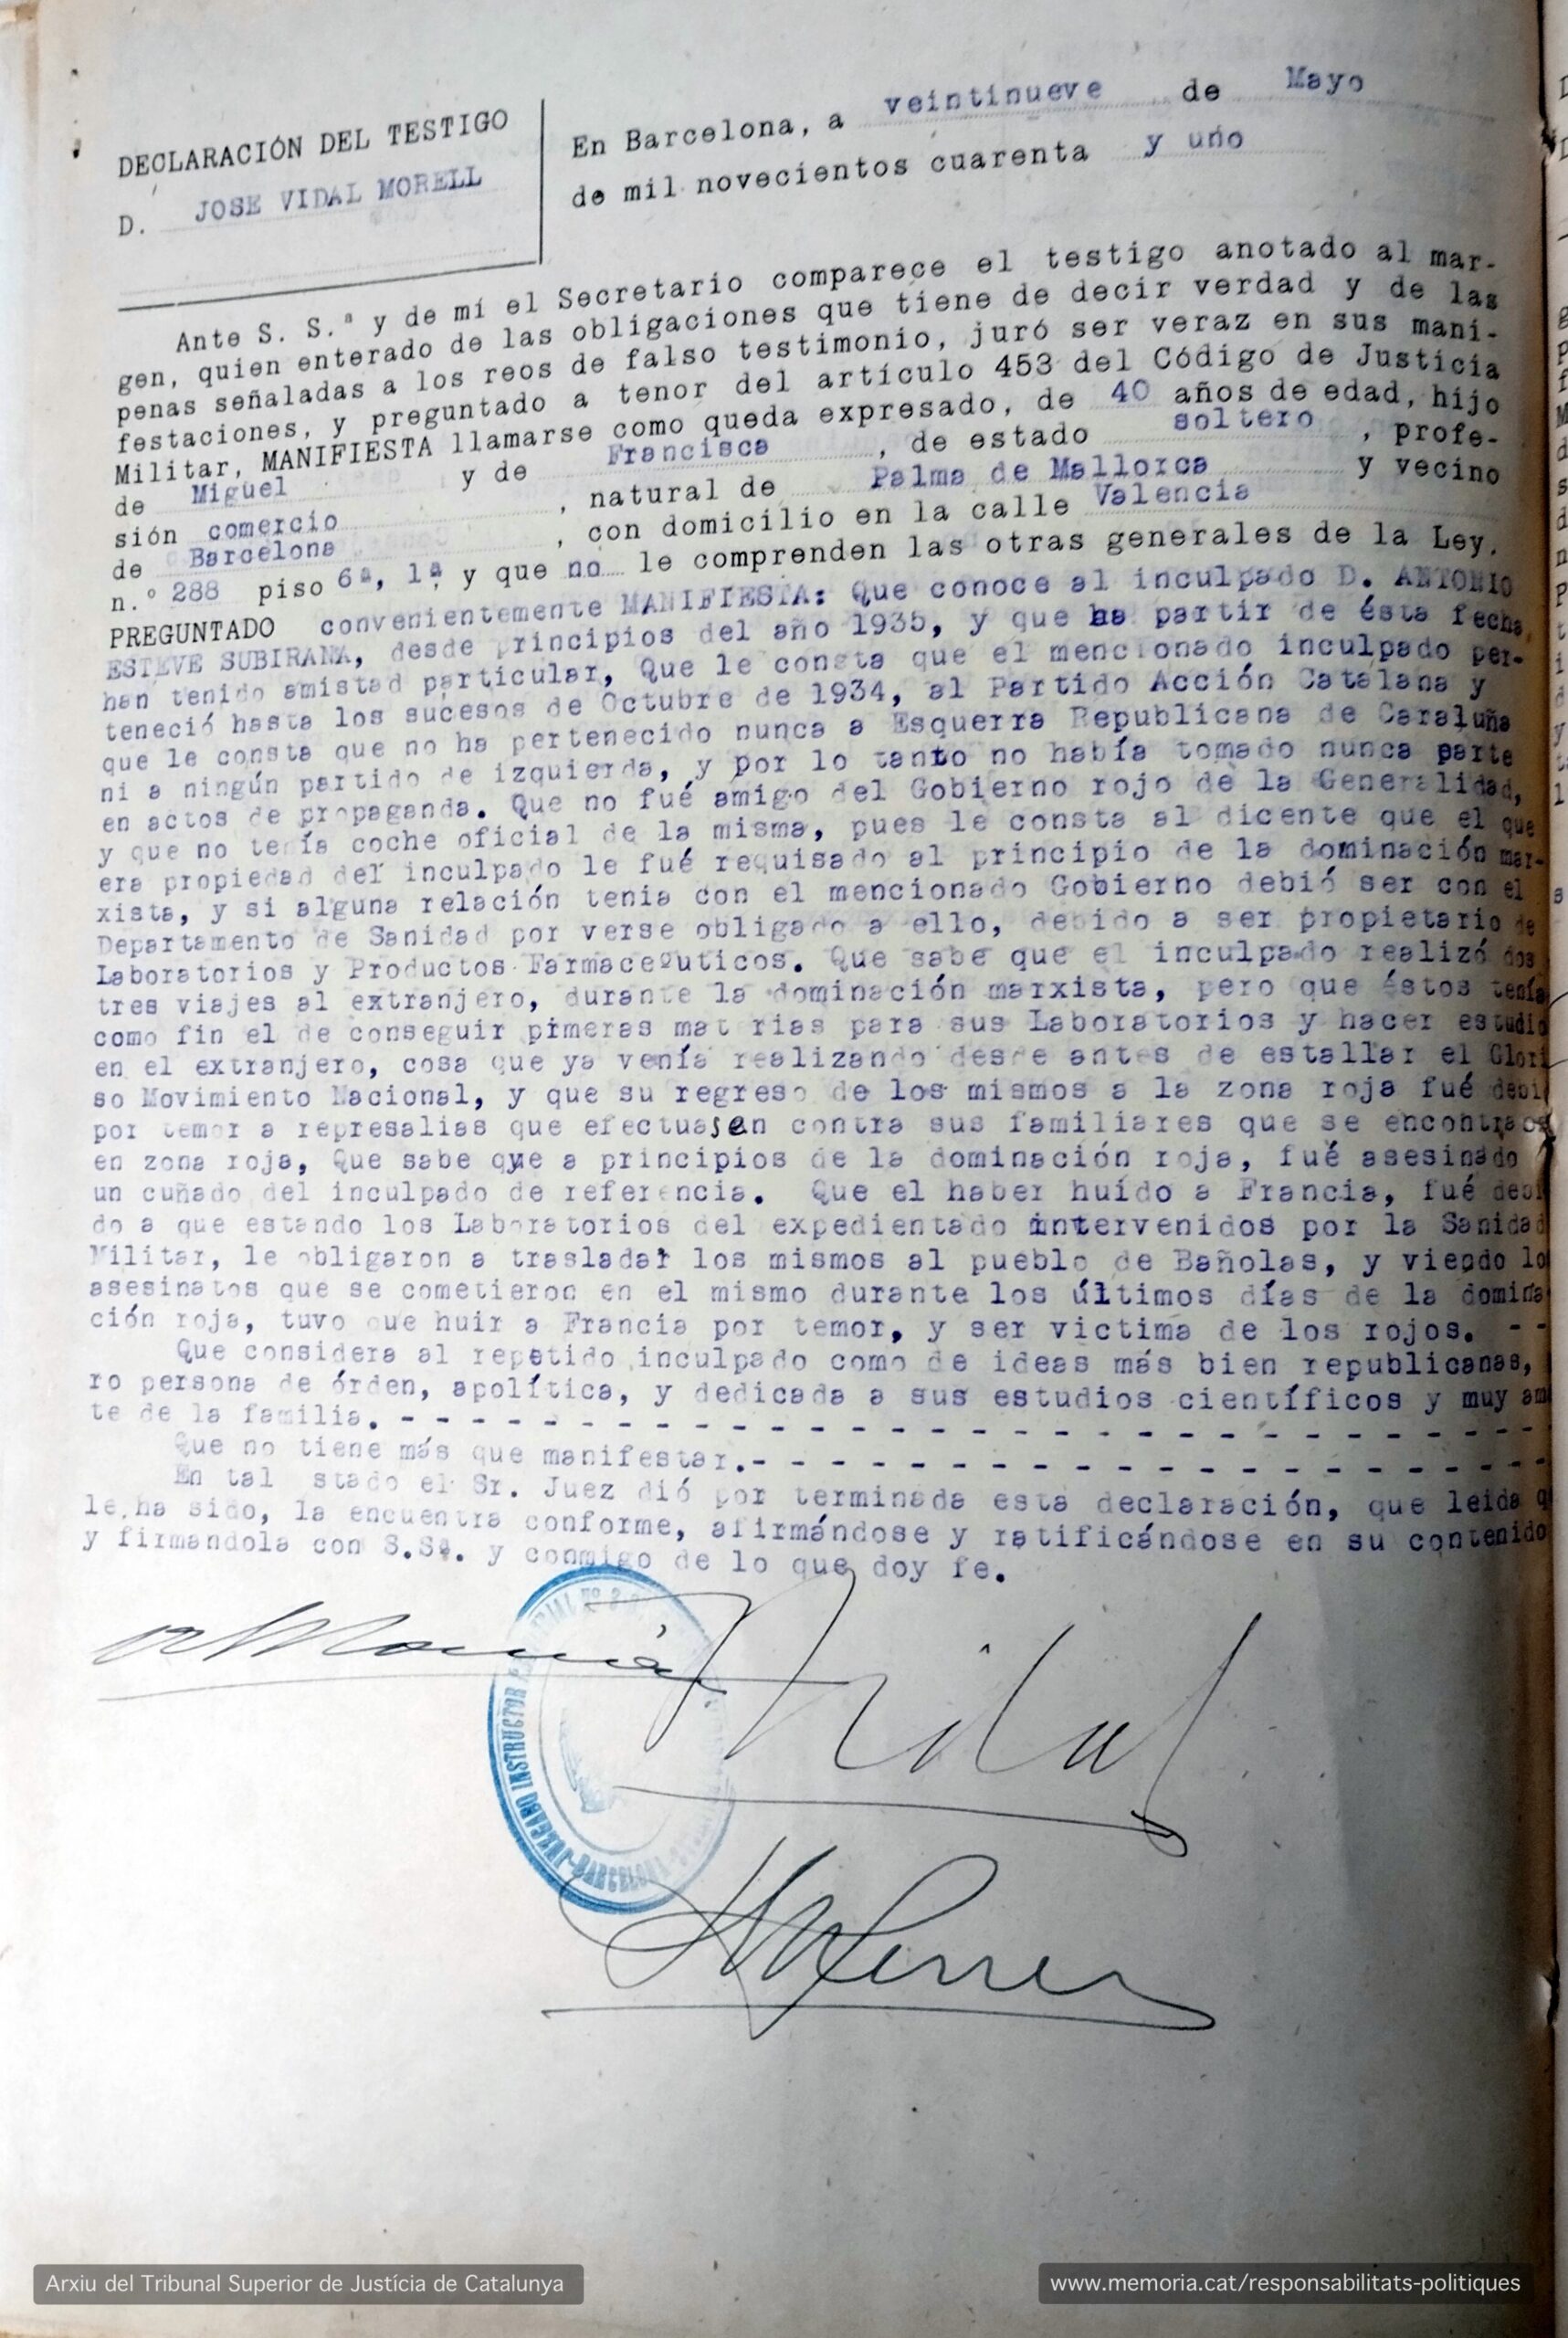 DECLARACIÓN DEL TESTIGO
D. JOSE VIDAL MORELL
En Barcelona, a veintinueve de Mayo
de mil novecientos cuarenta y uno
Ante S. S.ª y de mí el Secretario comparece el testigo anotado al mar-
gen, quien enterado de las obligaciones que tiene de decir verdad y de las
penas señaladas a los reos de falso testimonio, juró ser veraz en sus mani-
festaciones, y preguntado a tenor del artículo 453 del Código de Justicia
Militar, MANIFIESTA llamarse como queda expresado, de 40 años de edad, hijo
de Miguel y de Francisca, de estado soltero, profe-
sión comercio, natural de Palma de Mallorca y vecino
de Barcelona, con domicilio en la calle Valencia
n.º 288 piso 6ª, 1ª, y que no le comprenden las otras generales de la Ley.
PREGUNTADO convenientemente MANIFIESTA: Que conoce al inculpado D. ANTONIO
ESTEVE SUBIRANA, desde principios del año 1935, y que ha partir de ésta fecha,
han tenido amistad particular, Que le consta que el mencionado inculpado per-
teneció hasta los sucesos de Octubre de 1934, al Partido Acción Catalana y
que le consta que no ha pertenecido nunca a Esquerra Republicana de Caraluña
ni a ningún partido de izquierda, y por lo tanto no había tomado nunca parte
en actos de propaganda. Que no fué amigo del Gobierno rojo de la Generalidad,
y que no tenía coche oficial de la misma, pues le consta al dicente que el que
era propiedad del inculpado le fué requisado al principio de la dominación mar-
xista, y si alguna relación tenia con el mencionado Gobierno debió ser con el
Departamento de Sanidad por verse obligado a ello, debido a ser propietario de
Laboratorios y Productos Farmaceuticos. Que sabe que el inculpado realizó dos
tres viajes al extranjero, durante la dominación marxista, pero que éstos tenía
como fin el de conseguir pimeras mat rias para sus Laboratorios y hacer estudio
en el extranjero, cosa que ya venía realizando desde antes de estallar el Glori
so Movimiento Nacional, y que su regreso de los mismos a la zona roja fué debi
por temor a represalias que efectuasen contra sus familiares que se encontrab
en zona roja, Que sabe que a principios de la dominación roja, fué asesinado
un cuñado del inculpado de referencia. Que el haber huído a Francia, fué debi
do a que estando los Laboratorios del expedientado intervenidos por la Sanidad
Militar, le obligaron a trasladar los mismos al pueblo de Bañolas, y viendo lo
asesinatos que se cometieron en el mismo durante los últimos días de la domina
ción roja, tuvo que huir a Francia por temor, y ser victima de los rojos. - -
Que considera al repetido inculpado como de ideas más bien republicanas,
ro persona de órden, apolítica, y dedicada a sus estudios científicos y muy am
te de la familia. - - - - - - - - - - - - - - - - - - - - - - - - -
Que no tiene más que manifestar.- - - - - - - - - - - - - - - - - -
En tal stado el Sr. Juez dió por terminada esta declaración, que leida q
le ha sido, la encuentra conforme, afirmándose y ratificándose en su contenido
y firmandola con S.Sª. y conmigo de lo que doy fe.
Vidal
JUZGADO INSTRUCTOR BARCELONA
Arxiu del Tribunal Superior de Justícia de Catalunya
www.memoria.cat/responsabilitats-politiques